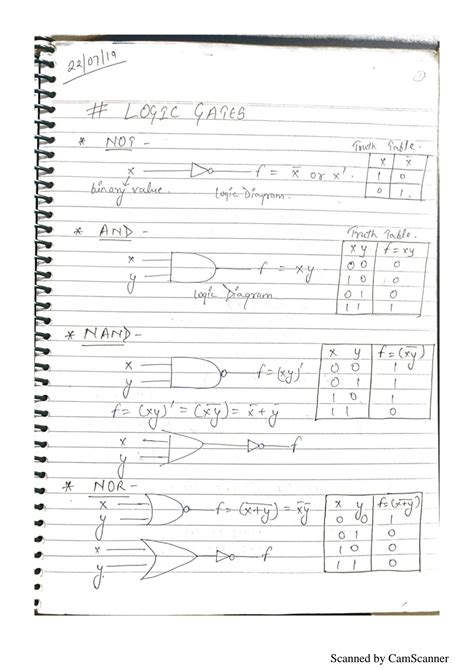 22/07/19
①
# LOGIC GATES
* NOT -
Truth Table.
x f = x̅ or x'.
binary value. Logic Diagram.
x x̅
1 0
0 1.
* AND -
Truth Table.
x
y f = xy
Logic Diagram.
x y f = xy
0 0 0
1 0 0
0 1 0
1 1 1
* NAND -
x
y f = (xy)'
f = (xy)' = (x̅y̅) = x̅ + y̅
x
y f
x y f = (x̅y̅)
0 0 1
0 1 1
1 0 1
1 1 0
* NOR -
x
y f = (x̅+̅y̅) = x̅y̅
x
y. f
x y f = (x̅+̅y̅)
0 0 1
0 1 0
1 0 0
1 1 0
Scanned by CamScanner